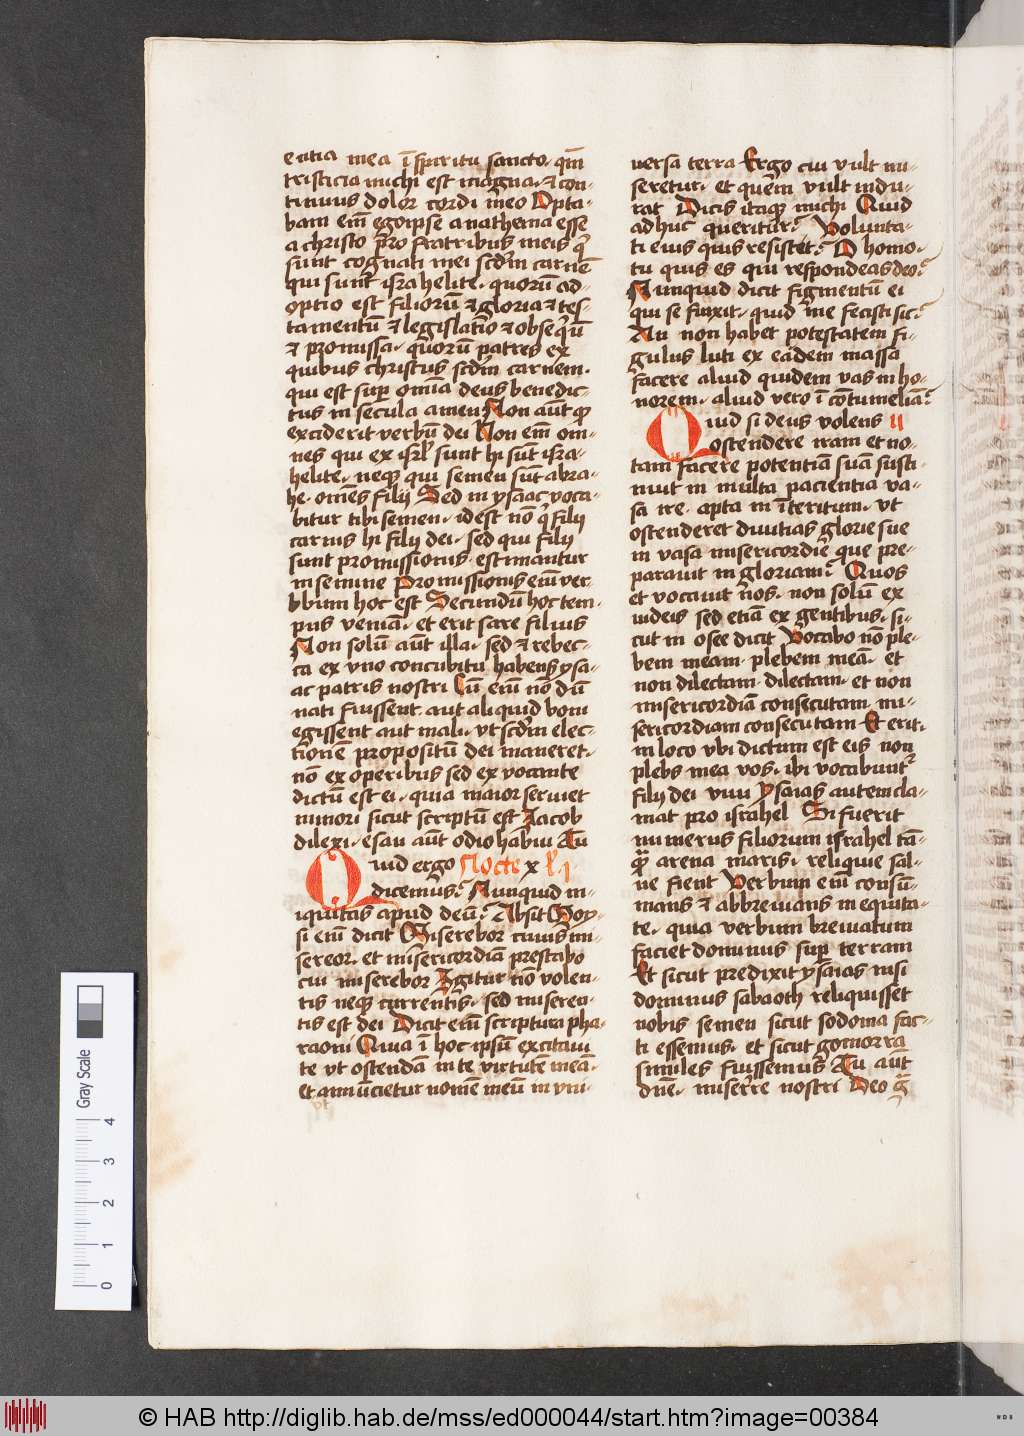 entia mea ī spiritu sancto. qm̄
tristicia michi est magna. et con-
tinuus dolor cordi meo Opta-
bam em̄ ego ipse anathema esse
a christo pro fratribus meis q̄
sunt cognati mei scdm̄ carnē
qui sunt israhelite. quorū ad-
optio est filiorū et gloria et tes-
tamentū et legislatio et obsequiū
et promissa. quorū patres ex
quibus christus scdm̄ carnem.
qui est sup omīa deus benedic-
tus in secula amen Non aūt q
exciderit verbū dei Non em̄ om-
nes qui ex isrl sunt hi sūt isra-
helite. neque qui semen sūt abra-
he. omēs filij Sed in ysaac voca-
bitur tibi semen. id est nō q̄ filij
carnis hi filij dei. sed qui filij
sunt promissionis. estimantur
in semine Promissionis em̄ ver
bbum hoc est Secundū hoc tem-
pus veniā. et erit sare filius
Non solū aūt illa. sed et rebec-
ca ex vno concubitu habens ysa-
ac patris nostri Cū em̄ nō dū
nati fuissent. aut aliquid boni
egissent aut mali. vt scdm̄ elec-
tionē propositū dei maneret.
nō ex operibus sed ex vocante
dictū est ei. quia maior seruiet
minori sicut scriptū est Jacob
dilexi. esau aūt odio habui Tu
Quid ergo Nocte
dicemus? Nunquid in-
iquitas apud deū? Absit Moy-
si em̄ dicit Miserebor cuius mi-
sereor. et misericordiā prestabo
cui miserebor Igitur nō volen-
tis neque currentis. sed miseren-
tis est dei Dicit em̄ scriptura pha-
raoni Quia ī hoc ipsū excitaui
te vt ostendā in te virtutē meā.
et annūcietur nomē meū in vni-
uersa terra Ergo cui vult mi-
seretur. et quem vult indu-
rat Dicis itaque michi Quid
adhuc queritur? Volunta-
ti eius quis resistet? O homo.
tu quis es qui respondeas deo?
Nunquid dicit figmentū ei
qui se finxit. quid me fecisti sic?
An non habet potestatem fi-
gulus luti ex eadem massa
facere aliud quidem vas in ho-
norem. aliud vero ī cōtumeliā?
Quid si deus volens ij
ostendere iram et no-
tam facere potentiā suā susti-
nuit in multa pacientia va-
sa ire. apta in īteritum. vt
ostenderet diuitias glorie sue
in vasa misericordie que pre-
parauit in gloriam? Quos
et vocauit nos. non solū ex
iudeis sed etiā ex gentibus. si-
cut in osee dicit Vocabo nō ple-
bem meam. plebem meā. et
non dilectam. dilectam. et non
misericordiā consecutam. mi-
sericordiam consecutam Et erit.
in loco vbi dictum est eis non
plebs mea vos. ibi vocabuntr
filij dei viui Ysaias autem cla-
mat pro israhel Si fuerit
numerus filiorum israhel tā-
q̄ arena maris. reliquie sal-
ue fient Verbum em̄ consū-
mans et abbreuians in equita-
te. quia verbum breuiatum
faciet dominus sup terram
Et sicut predixit ysaias nisi
dominus sabaoth reliquisset
nobis semen sicut sodoma fac-
ti essemus. et sicut gomorra
similes fuissemus Tu aūt
dnē. miserere nostri Deo g̃
© HAB http://diglib.hab.de/mss/ed000044/start.htm?image=00384
Gray Scale
0 1 2 3 4